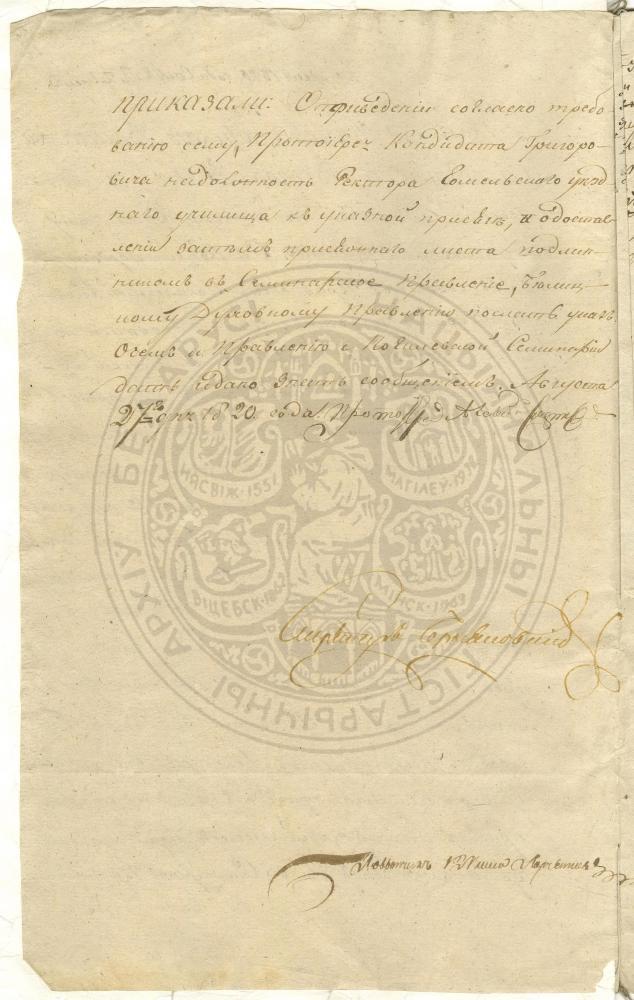 ПРИКАЗАЛИ: О приведении согласно требо-
ванию сему, Протоіерея Кандидата Григоро-
вича на должность Ректора Гомельскаго уезд-
наго училища къ указной присяге, и о достав-
лении затемъ присяжнаго листа подлин-
никомъ въ Семинарское Правление,
ному Духовному Правлению послать указъ
О чемъ и Правлению Могилевской Семинарии
дать знать сообщениемъ. Августа
27го дня 1820 года.
Секретарь
НАЦЫЯНАЛЬНЫ ГІСТАРЫЧНЫ АРХІЎ БЕЛАРУСІ
НЯСВІЖ-1551
МАГІЛЕЎ-19
ВІЦЕБСК-1862
МІНСК-1949